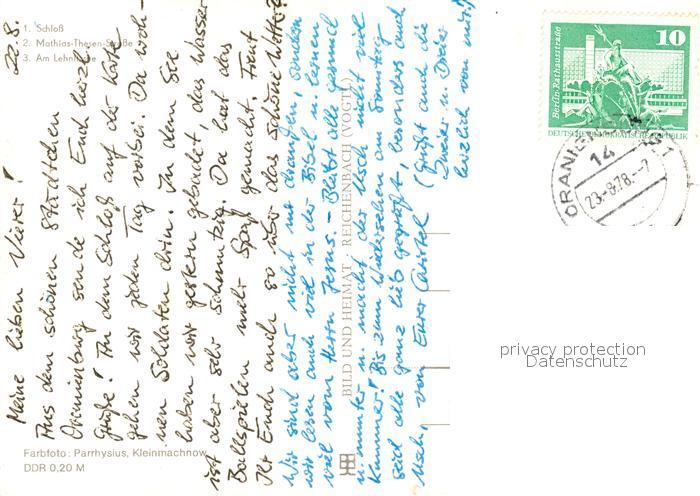 1. Schloß
2. Mathias-Thesen-Straße
3. Am Lehnitzsee
22.8.
Meine lieben Vierer!
Aus dem schönen Städtchen
Oranienburg sende ich Euch herzl.
Grüße! An dem Schloß auf der Karte
gehen wir jeden Tag vorbei. Da woh-
nen Soldaten drin. In dem See
haben wir gestern gebadet, das Wasser
ist aber sehr schmutzig. Da hat das
Ballspielen mehr Spaß gemacht. Freut
Ihr Euch auch so über das schöne Wetter?
Wir sind aber nicht nur draußen, sondern
wir lesen auch viel in der Bibel u. lernen
viel vom Herrn Jesus. - Bleibt alle gesund
u. munter u. macht der Usch nicht viel
Kummer! Bis zum Wiedersehen am Sonntag
seid alle ganz lieb gegrüßt, besonders auch
Usch, von Eurer Christel (Grüßt auch die
Zweier u. Dreier
herzlich von mir!)
BILD UND HEIMAT · REICHENBACH (VOGTL)
Farbfoto: Parrhysius, Kleinmachnow
DDR 0,20 M
10
Berlin, Rathausstraße
DEUTSCHE DEMOKRATISCHE REPUBLIK
14
23.-8.78.-7
privacy protection
Datenschutz